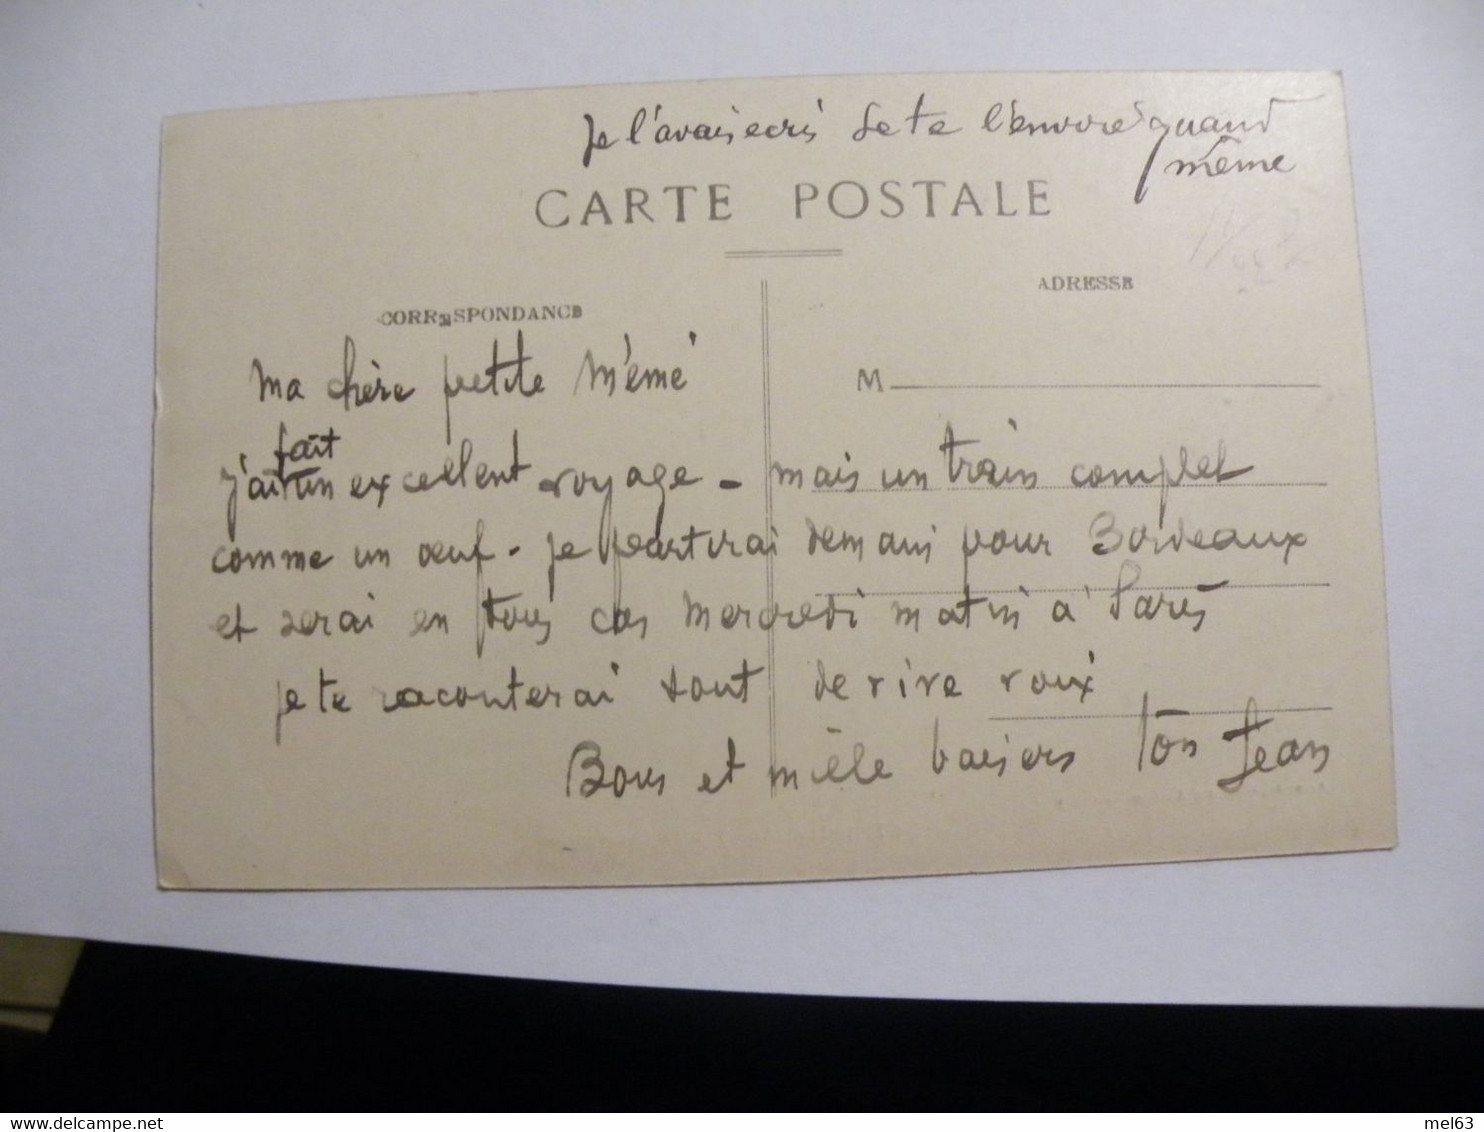 Je l'avais ecris Je te l'envoie quand
même
CARTE POSTALE
ADRESSE
CORRESPONDANCE
Ma chère petite Mémé
M
fait
j'ai un excellent voyage - mais un train complet
comme un œuf - je partirai demain pour Bordeaux
et serai en tous cas Mercredi matin à Paris
je te raconterai tout de vive voix
Bons et mille baisers ton Jean
delcampe.net
mel63